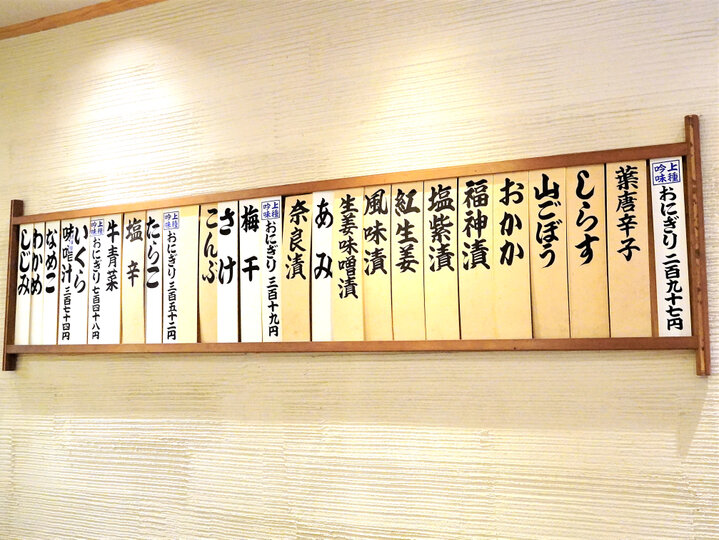 上種吟味 おにぎり 二百九十七円
葉唐辛子
しらす
山ごぼう
おかか
福神漬
塩紫漬
紅生姜
風味漬
生姜味噌漬
あみ
奈良漬
上種吟味 おにぎり 三百十九円
梅干
さけ
こんぶ
上種吟味 おにぎり 三百五十二円
たらこ
塩辛
牛青菜
上種吟味 おにぎり 七百四十八円
いくら
味噌汁 三百七十四円
なめこ
わかめ
しじみ